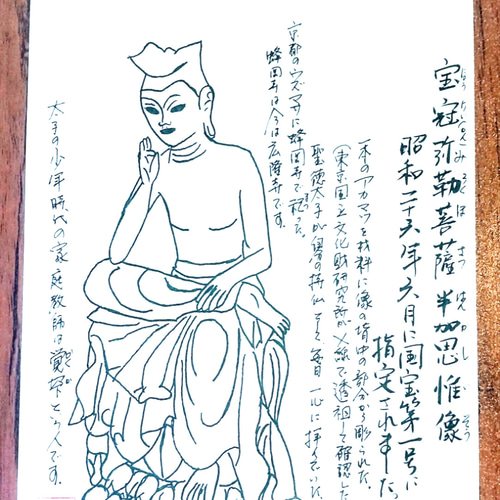 宝冠弥勒菩薩半加思惟像
昭和二十六年六月に国宝第一号に
指定されました。
一本のアカマツを材料に像の背中の部分から彫られた。
(東京国立文化財研究所がX線で透視して確認した
聖徳太子が の持仏として毎日一心に拝んでいた
京都のウズマサに蜂岡寺で祀った。
蜂岡寺は今は広隆寺です。
太子の少年時代の家庭教師は覚哿という人です。